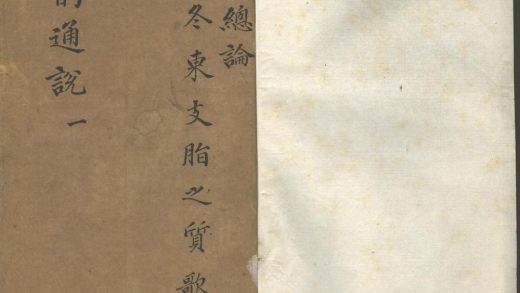 總論
冬東支脂之質歌
通說一